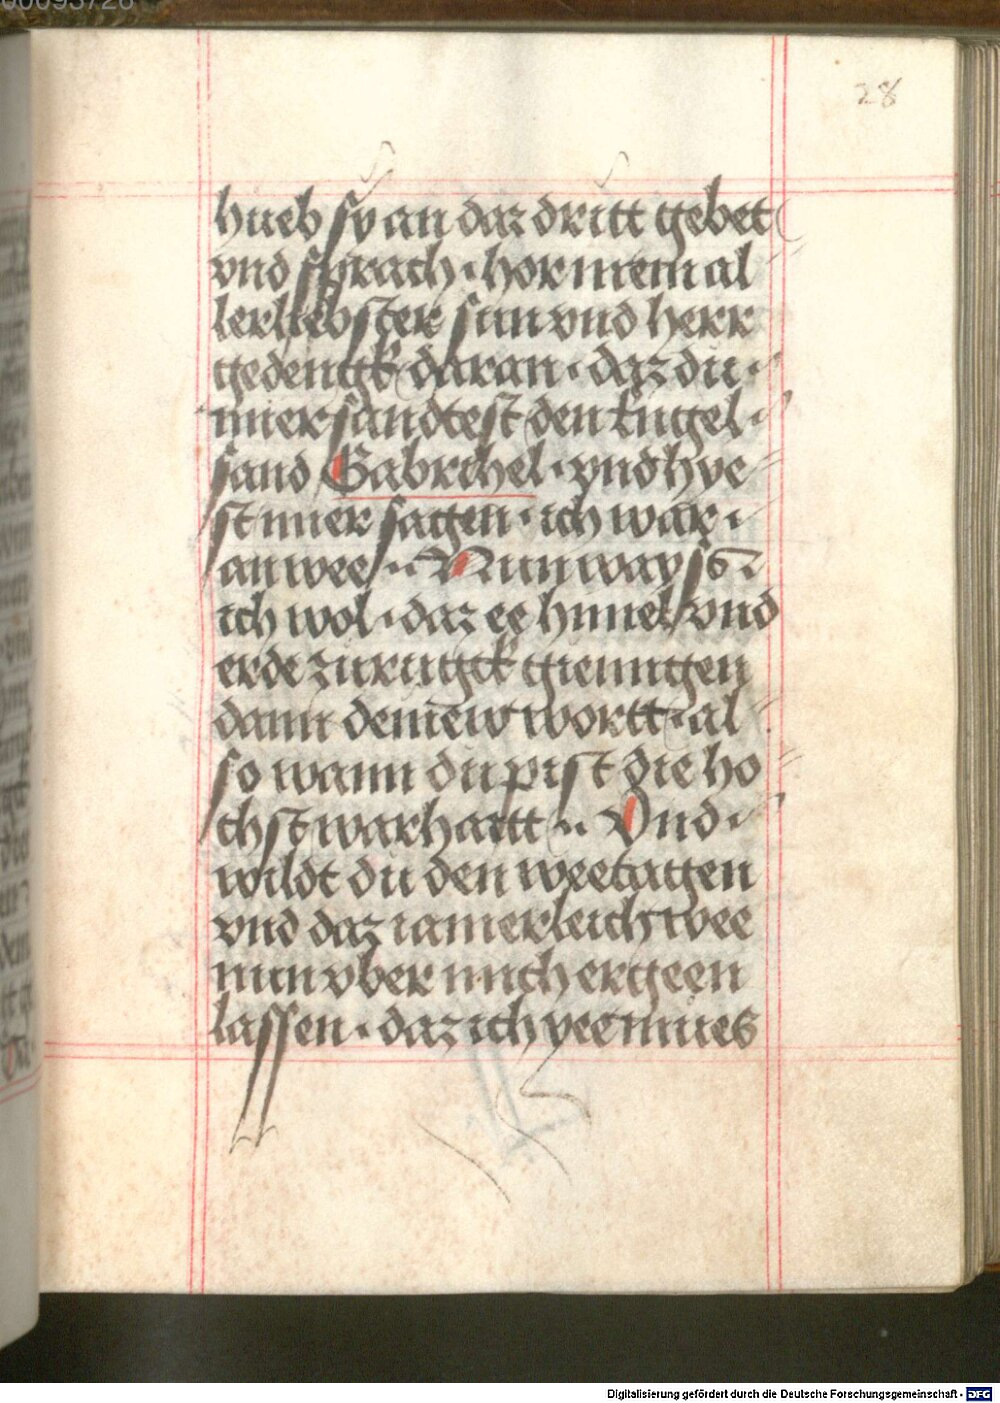 00093728
28
hueb sy an daz dritt gebet
vnd sprach · hor mein al
lerliebster sun vnd herr
gedengk daran · daz du ·
mier sandtest den Engel ·
sand Gabrihel · vnd hye
st mier sagen · ich war ·
an wee ·· Nun ways s ·
ich wol · daz ee himel vnd
erde zurugck gienngen
dann deinew wortt · al
so wann du pist die ho
chst warhaitt ·· Vnd ·
wildt du den weetagen
vnd daz iamerleich wee
nun vber mich ergeen
lassen · daz ich yee mues
Digitalisierung gefördert durch die Deutsche Forschungsgemeinschaft - DFG